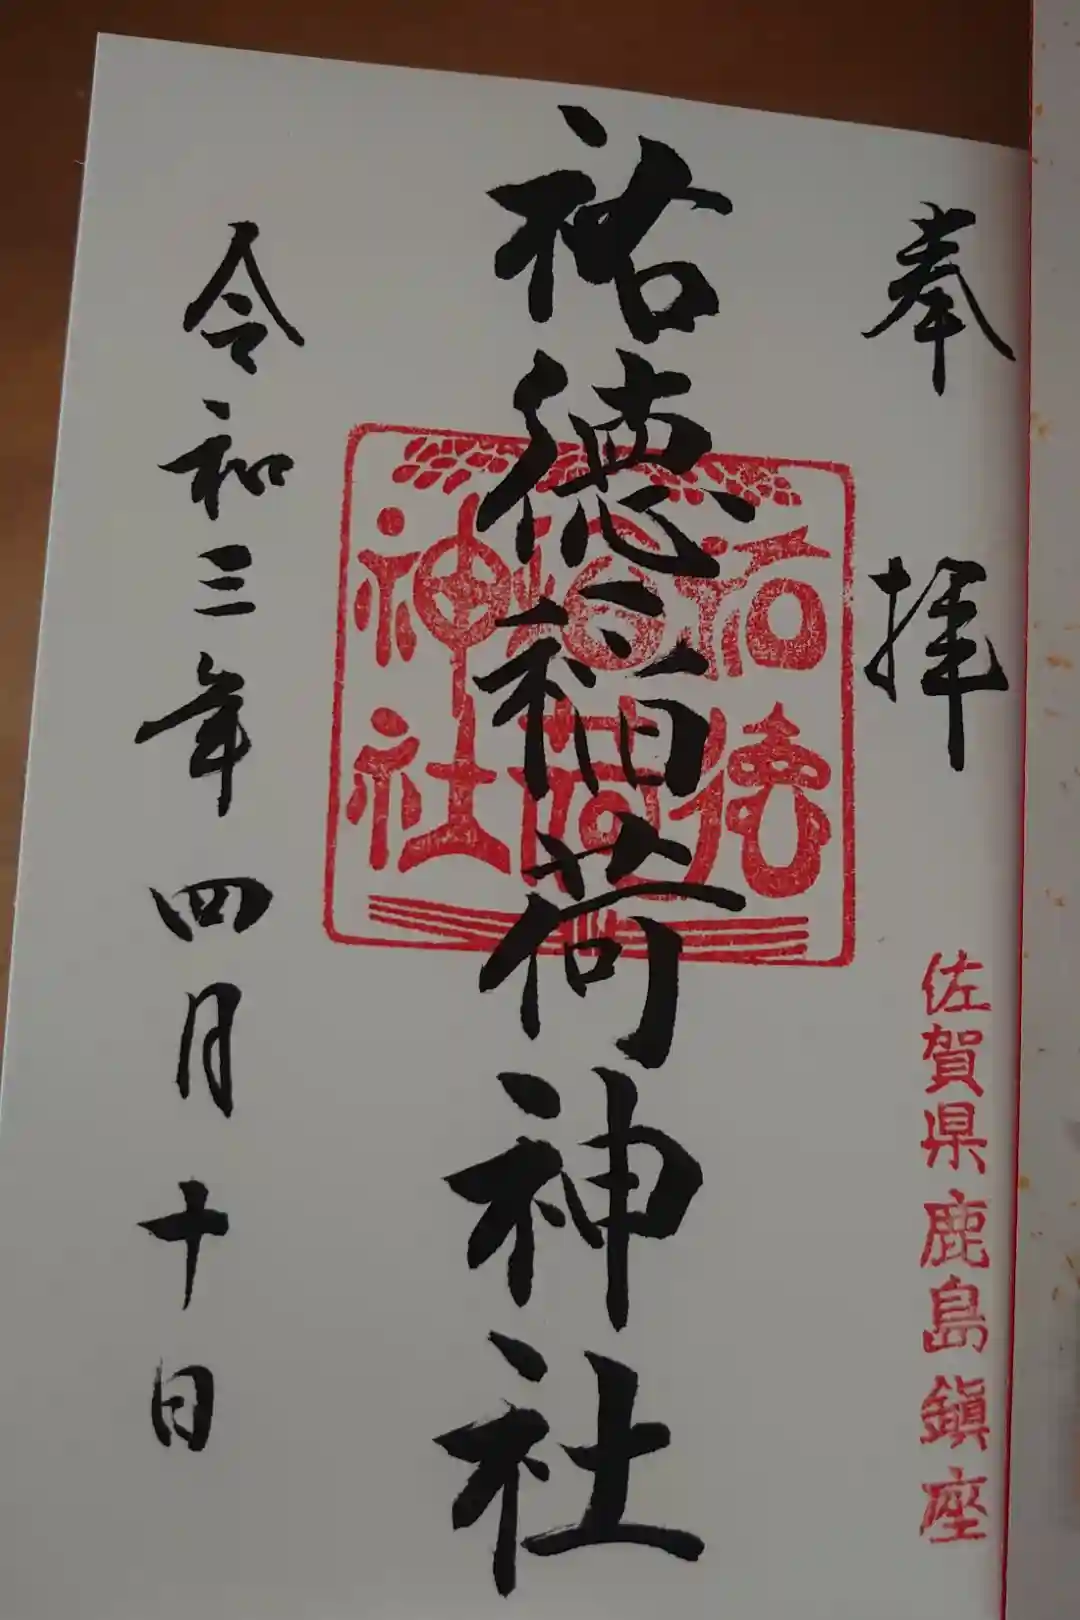 奉拝
佐賀県鹿島鎮座
祐徳稲荷神社
祐徳稲荷神社
令和三年四月十日